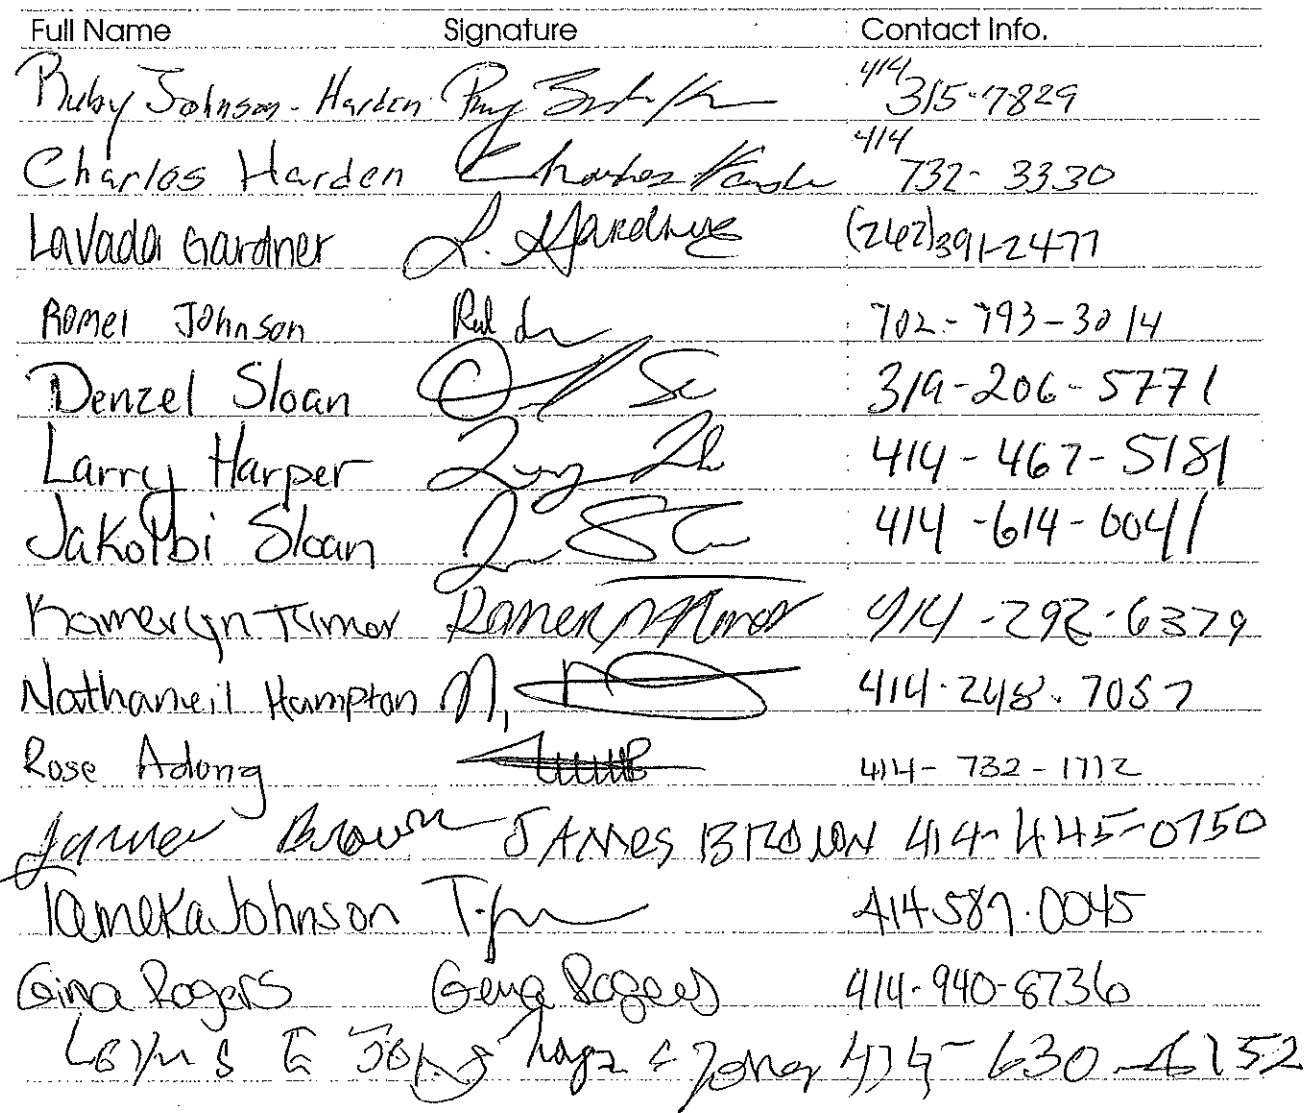 Full Name Signature Contact Info.
Ruby Johnson-Harden 414 315-7829
Charles Harden Charles Harden 414 732-3330
LaVada Gardner L. Gardner (262)391-2477
Romel Johnson 702-793-3014
Denzel Sloan 319-206-5771
Larry Harper 414-467-5181
Jakolbi Sloan 414-614-0041
Kamerlyn Turner 414-292-6379
Nathaneil Hampton N. 414-248-7057
Rose Adong 414-732-1712
James Brown JAMES BROWN 414-445-0750
Tameka Johnson T. 414 587.0045
Gina Rogers Gena Rogers 414-940-8736
414-630-6152